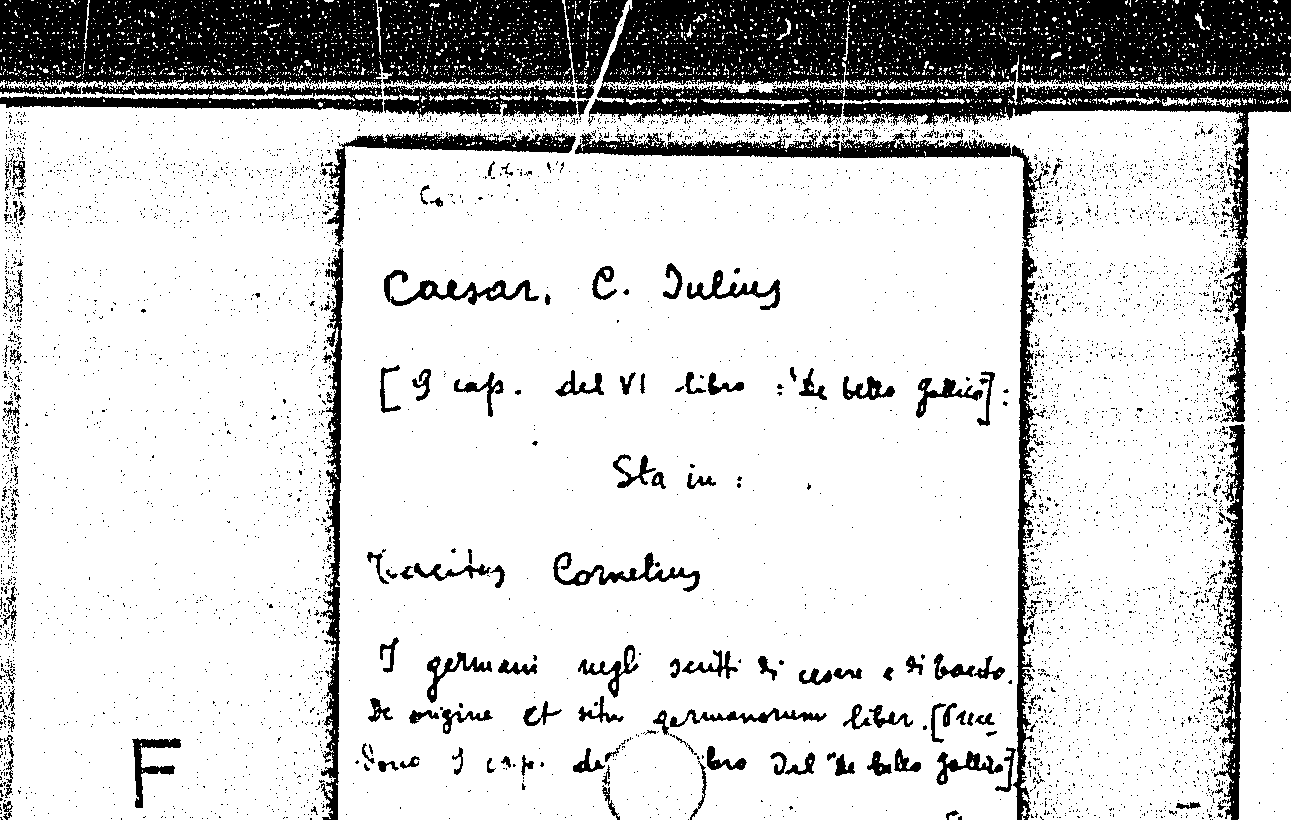 Libro VI
Caesar, C. Iulius
[9 cap. del VI libro : "De bello gallico] :
Sta in :
Tacitus Cornelius
I germani negli scritti di cesare e di tacito.
De origine et situ germanorum liber. [Prece_
dono 9 cap. de bro del "De bello gallico]
F